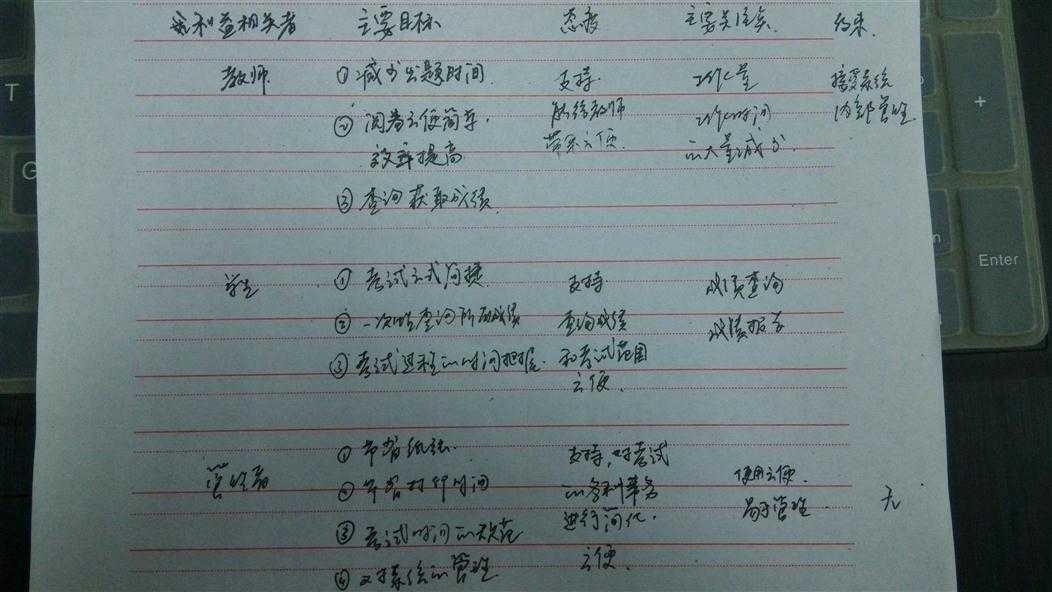 利益相关者 主要目标 态度 主要关注点 约束.
教师 ① 减少出题时间. 支持. 工作量 接受系统
② 阅卷方便简单. 能给教师 工作时间 内部管理
效率提高 带来方便. 的大量减少.
③ 查询获取成绩.
学生 ① 考试方式简捷. 支持 成绩查询
② 一次性查询所有成绩 查询成绩 成绩报告
③ 考试过程的时间把握. 和考试范围
方便.
① 节省纸张. 支持,对考试
管理者 ② 节省打印时间 的各种事务 使用方便. 无
③ 考试时间的规范 进行简化. 易于管理
④ 对系统的管理 方便.
T
G
+
Enter